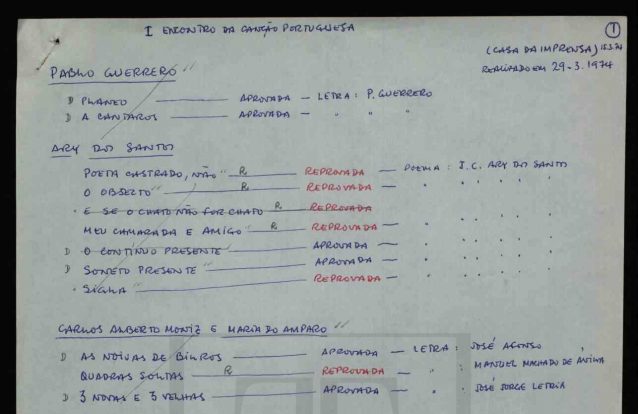 I ENCONTRO DA CANÇÃO PORTUGUESA
1
(CASA DA IMPRENSA) 15.3.74
REALIZADO EM 29-3.1974
PABLO GUERRERO "
D PLANEO APROVADA — LETRA: P. GUERRERO
D A CANTAROS APROVADA — " " "
ARY DOS SANTOS
POETA CASTRADO, NÃO " R. REPROVADA — POEMA: J.C. ARY DOS SANTOS
O OBJECTO " R. REPROVADA — " " " " "
• E SE O CHATO NÃO FOR CHATO R. REPROVADA
MEU CAMARADA E AMIGO " R. REPROVADA — " " " " "
D O CONTINUO PRESENTE " APROVADA — " " " " "
D SONETO PRESENTE " APROVADA — " " " " "
• SIGLA " REPROVADA — " " " " "
CARLOS ALBERTO MONIZ E MARIA DO AMPARO "
D AS NOIVAS DE BILROS APROVADA — LETRA: JOSÉ AFONSO
QUADRAS SOLTAS R. REPROVADA — " MANUEL MACHADO DE ÁVILA
D 3 NOVAS E 3 VELHAS APROVADA — " JOSÉ JORGE LETRIA